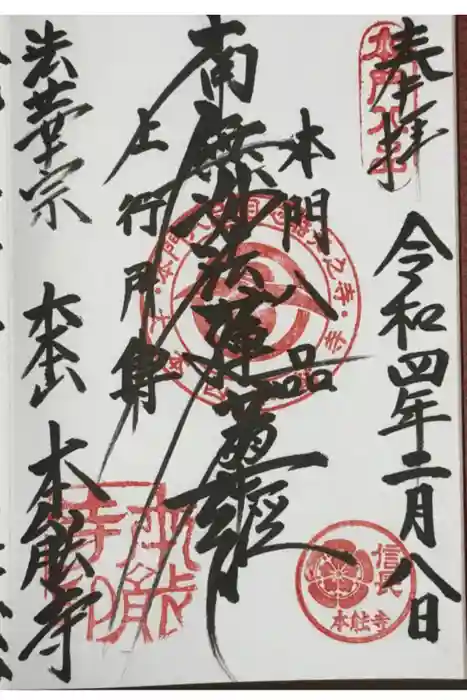 奉拝
令和四年二月八日
本門八品
南無妙法蓮華経
上行所傳
法華宗 大本山 本能寺
本門八品
信長
本能寺
本能寺印